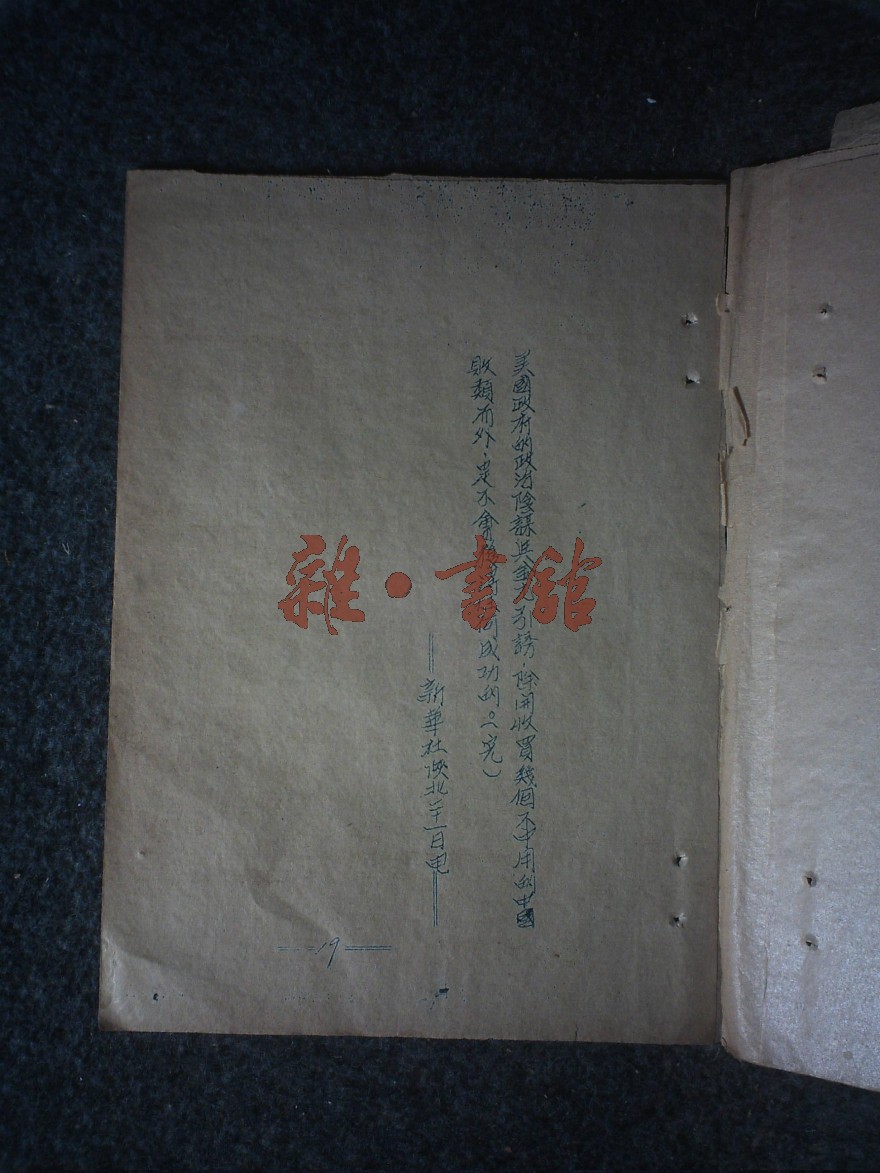 美國政府的政治陰謀與金元引誘，除開收買幾個不中用的中國
敗類而外，是不會成功的。（完）
══新華社陝北二十一日電══
══19══
雜·書館